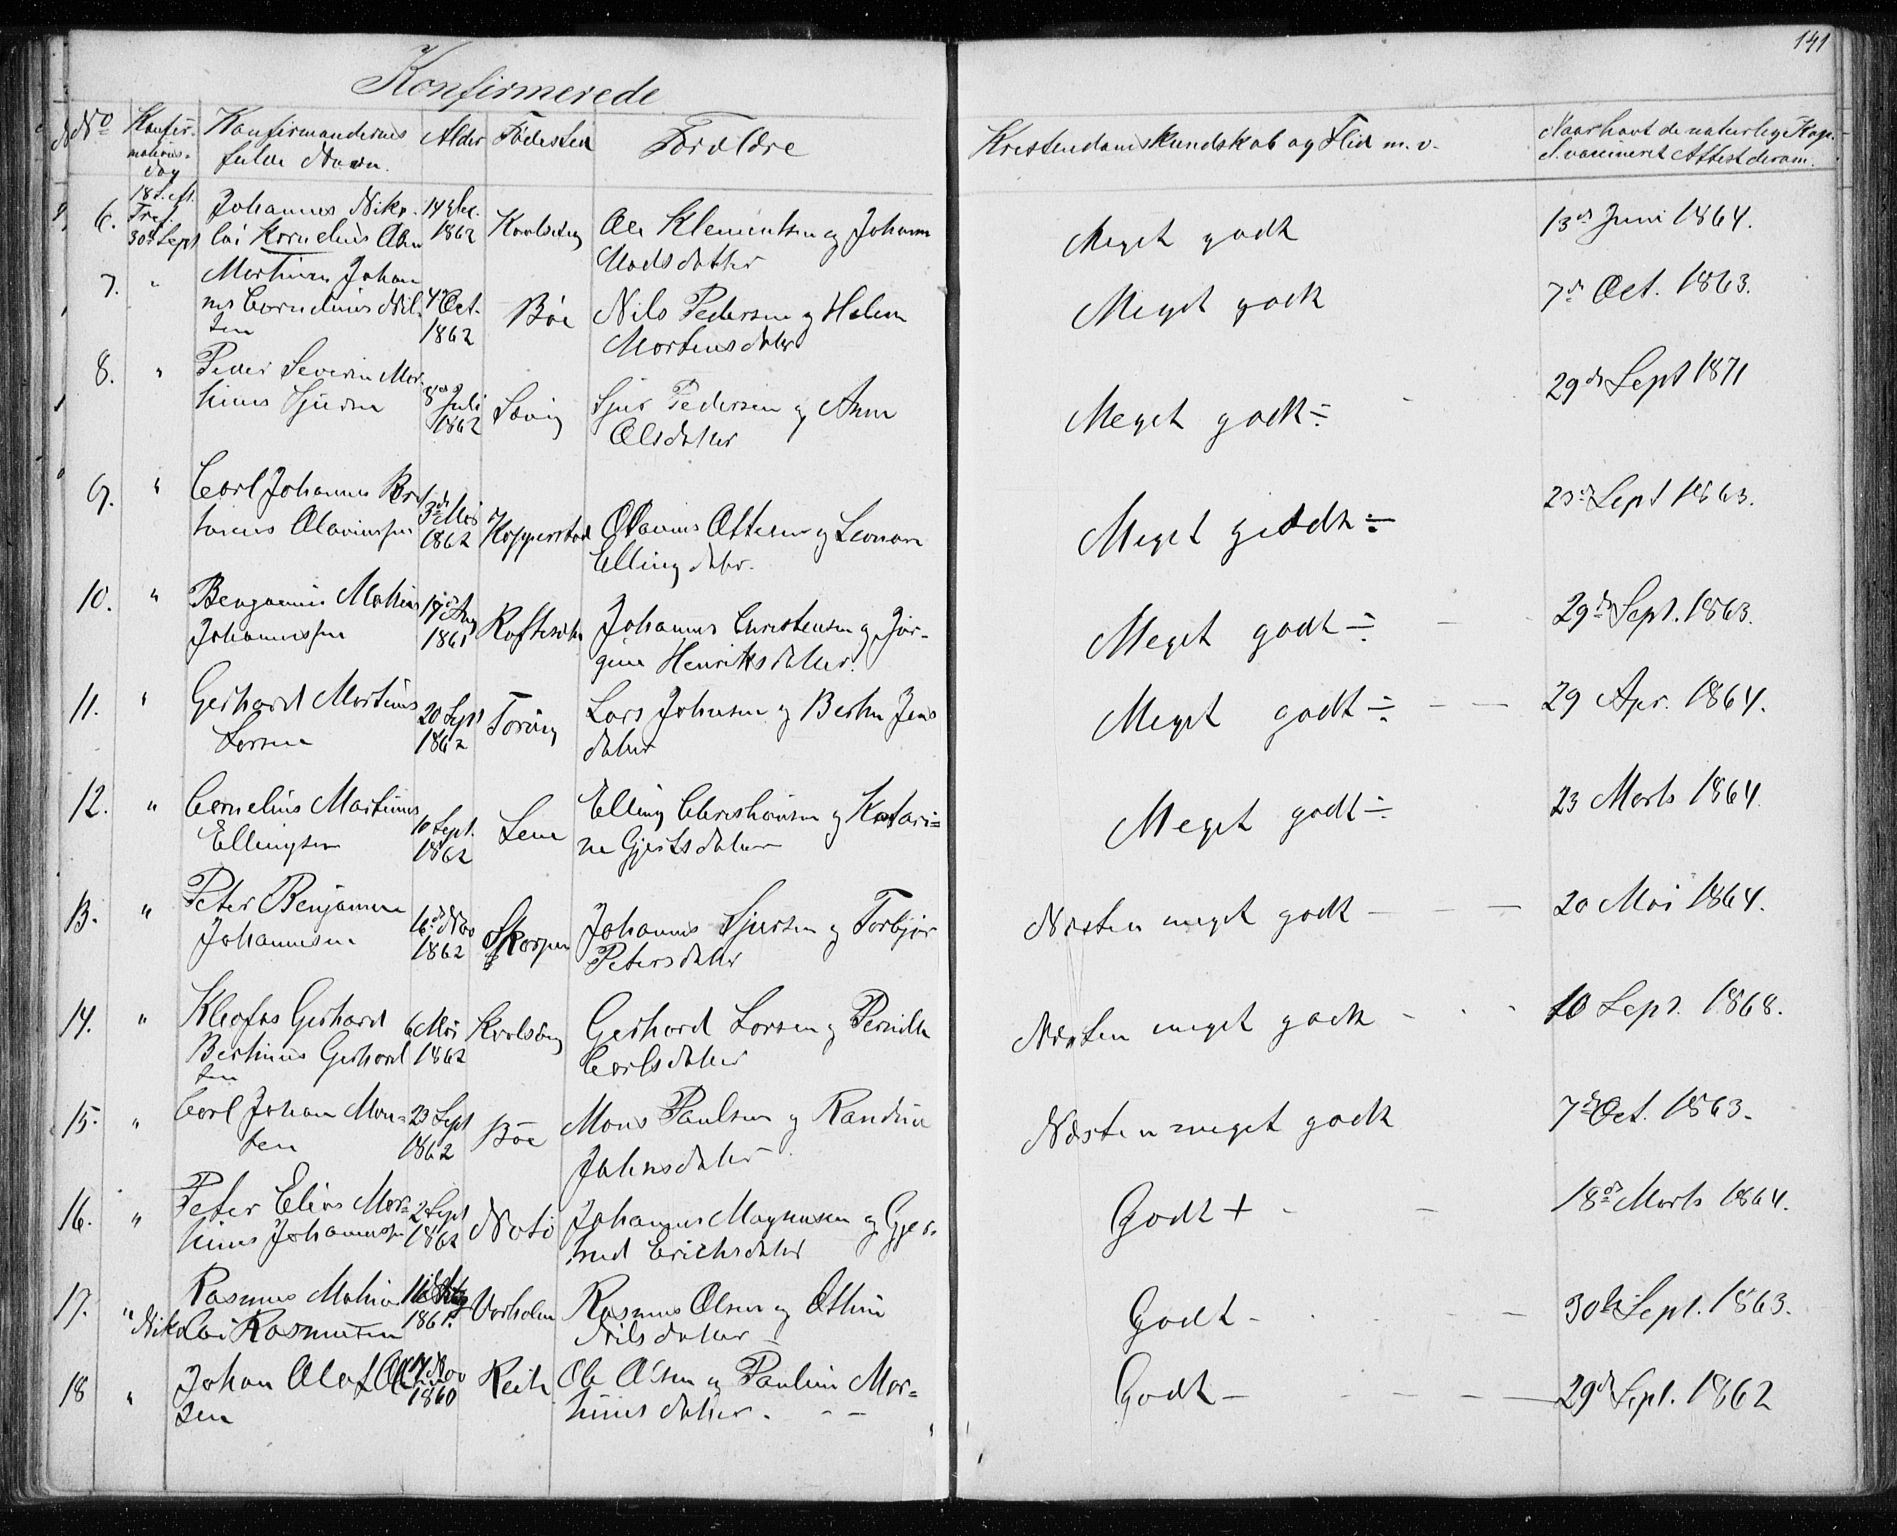 141
Konfirmerede
No
Konfir-
mations-
dag
Konfirmandernes
fulde Navn.
Alder
Fødested
Forældre
Kristendomskundskab og Flid m. v.
Naar havt de naturlige Kop.
l. vaccineret Attest derom.
6.
18 S. eft.
Tref.
30d Sept
Johannes Niko-
lai Kornelius Olsen
14
1862
Ole Klementsen og Johanna
Madsdatter
Meget godt
13de Juni 1864.
7.
"
Martinus Johan
nes Cornelius Nil-
sen
4de Oct.
1862
Böe
Nils Pedersen og Helene
Mortensdatter
Meget godt
7de Oct. 1863.
8.
"
Peder Severin Mar-
tinus Sjursen
8de Juli
1862
Sjur Pedersen og Anne
Olsdatter
Meget godt ÷
29de Sept 1871
9.
"
Carl Johannes
Olavinsen
3de Mai
1862
Kopperstad
Olavius Ottesen og Leonore
Ellingdatter.
Meget godt ÷
23de Sept 1863.
10.
"
Bengamin Mathias
Johannessen
17de Aug
1861
Johannes Christensen og Jör-
gine Henriksdatter.
Meget godt ÷
29de Sept. 1863.
11.
"
Gerhard Martinus
Larsen
20 Sept
1862
Toröig
Lars Johnsen og Berthe Jens
datter
Meget godt ÷
29 Apr. 1864.
12.
"
Cornelius Martinus
Ellingsen
10 Sept.
1862
Lene
Elling Christiansen og Katari=
ne Gjertsdatter
Meget godt ÷
23 Marts 1864
13.
"
Peter Benjamin
Johannesen
16de Nov
1862
Skorpen
Johannes Sjursen og Torbjör
Petersdatter
Næsten meget godt
20 Mai 1864.
14.
"
Kleofas Gerhard
Bertinius Gerhard
sen
6 Mai
1862
Gerhard Larsen og Pernille
Carlsdatter
Næsten meget godt
10 Sept. 1868.
15.
"
Carl Johan Mon=
sen
23 Sept
1862
Böe
Mons Paulsen og Randine
Johnsdatter
Næsten meget godt
7de Oct. 1863.
16.
"
Peter Elias Mar=
tinus Johannessen
2 Sept
1862
Notö
Johannes Magnusen og Gjer-
trud Erichsdatter
Godt +
18de Marts 1864.
17.
"
Rasmus Mathias
Nikolai Rasmussen
1861.
Varholm
Rasmus Olsen og Othine
Nilsdatter
Godt
30te Sept. 1863.
18
"
Johan Olaf Ol
sen
17 Nov
1860
Ole Olsen og Pauline Mar=
tinusdatter.
Godt
29de Sept. 1862